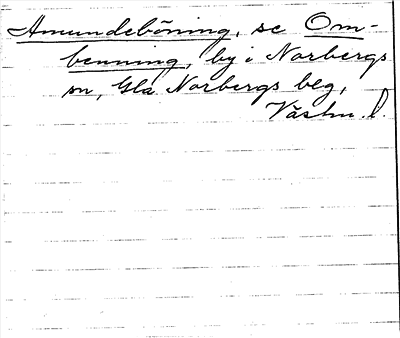 Amundeböning, se Om-
benning, by i Norbergs
sn, Gla Norbergs blg,
Västm. l.